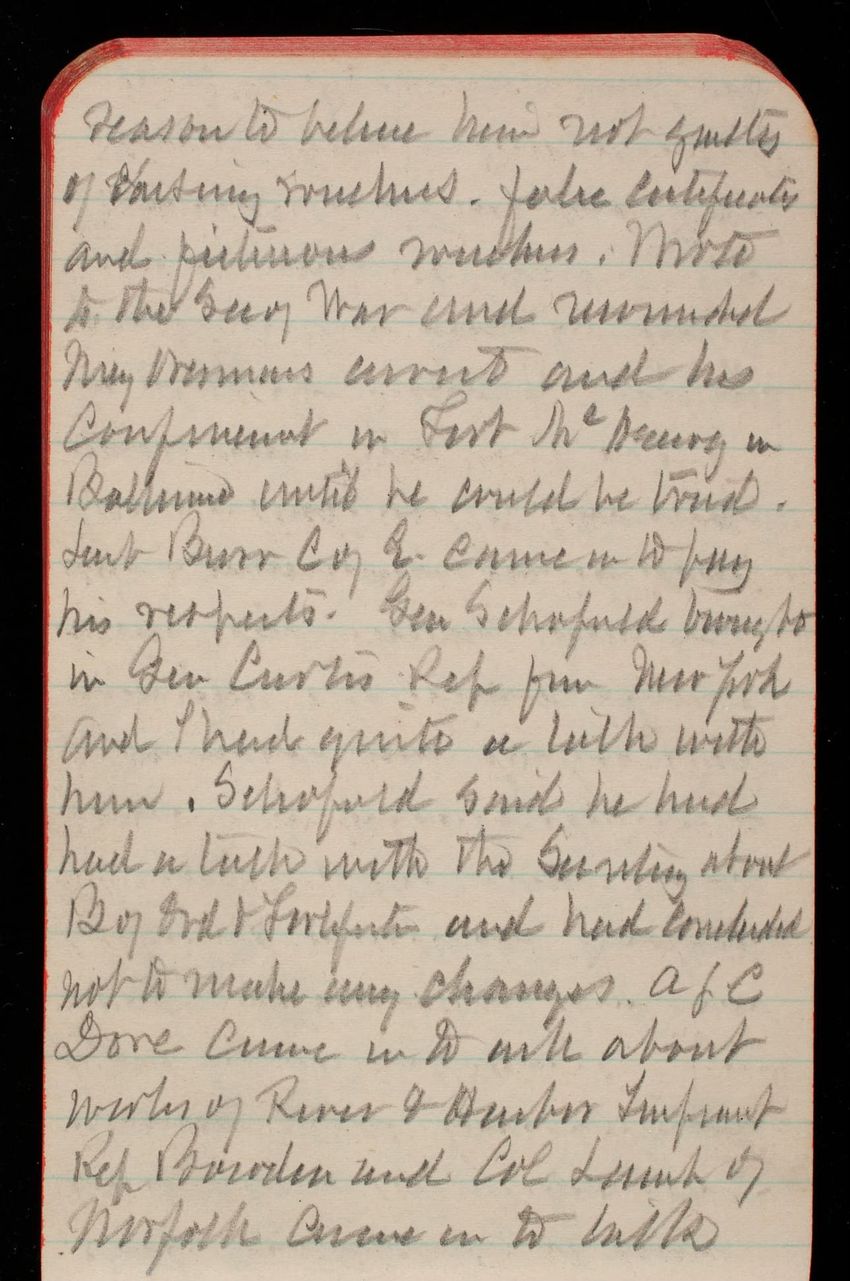 reason to believe him not guilty
of vouchers. false certificates
and fictitious vouchers. Wrote
to the Sec of War and recommended
Maj arrest and his
Confinement in Fort McHenry in
Baltimore until he could be tried.
Lieut Burr C of E. came in to pay
his respects. Gen Schofield brought
in Gen Curtis Rep from New York
and I had quite a talk with
him. Schofield said he had
had a talk with the Secretary about
B of Ord & Fortifctn and had concluded
not to make any changes. A f C
Dove came in to ask about
works of River & Harbor Improvmt
Rep Bowden and Col Lamb of
Norfolk came in to talk